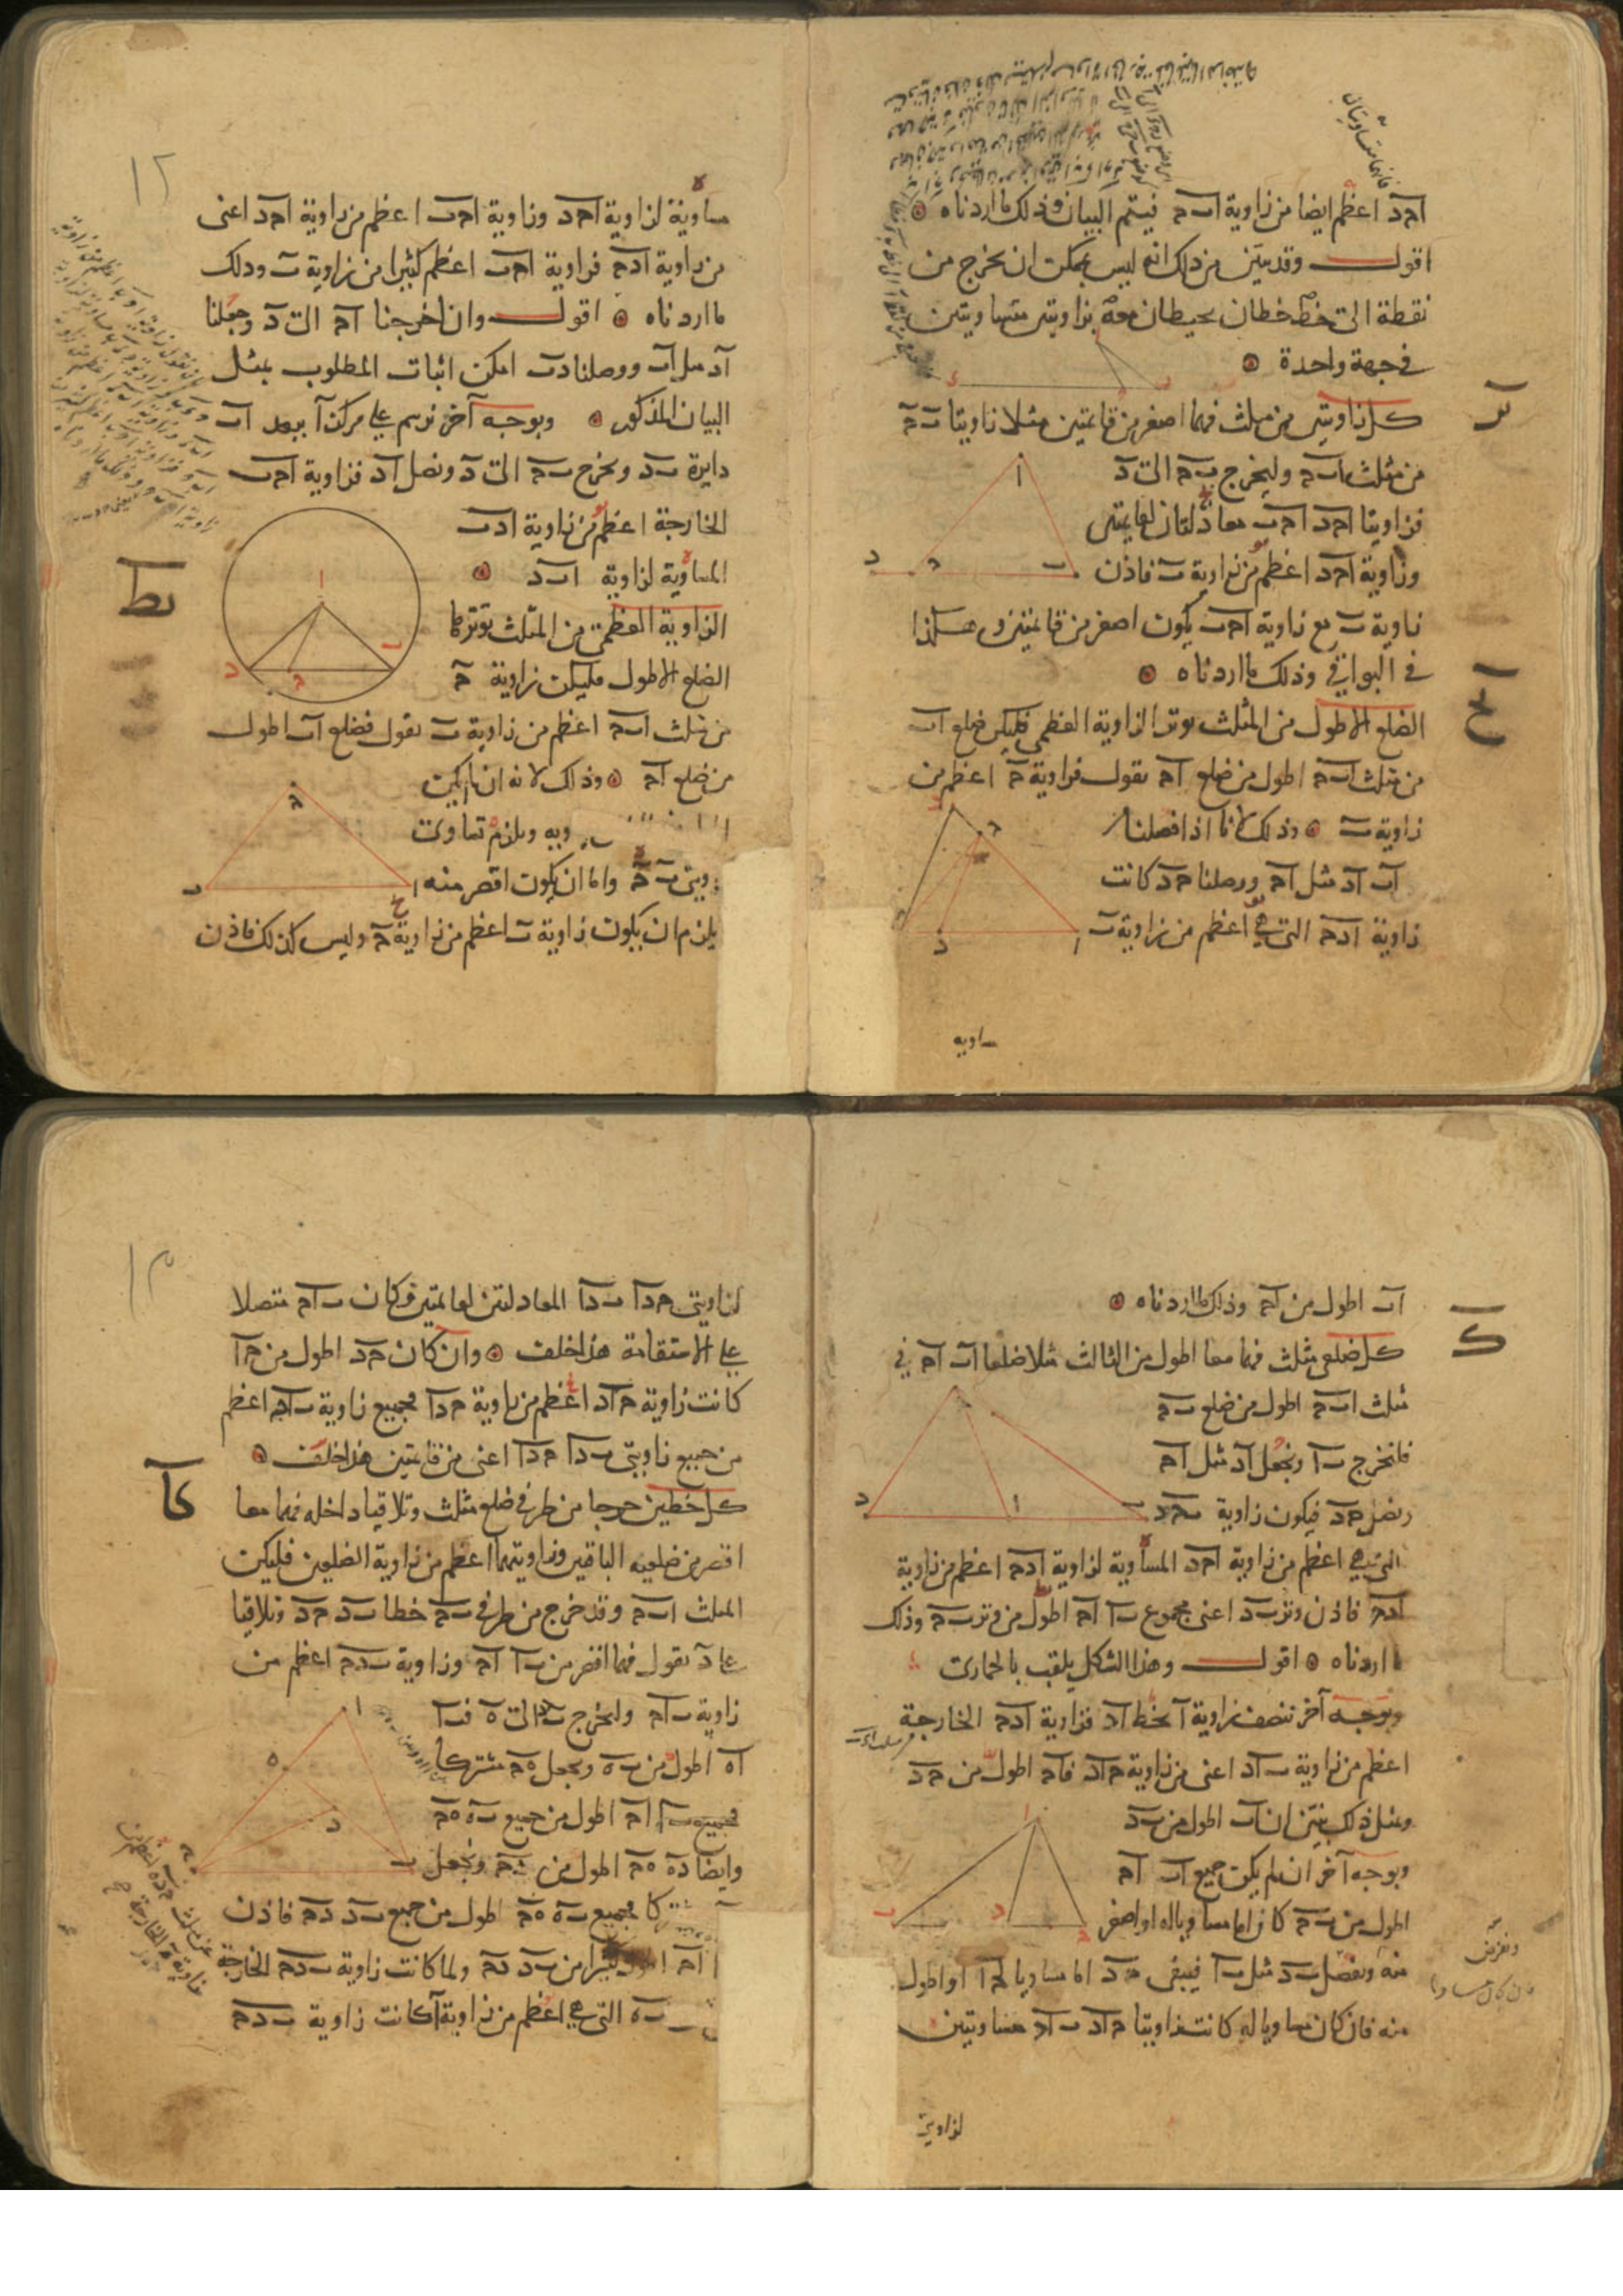 احد اعظم ايضا من زاوية ابح فيتم البيان وذلك ما اردناه
اقول وقد تبين من ذلك انه ليس يمكن ان يخرج من
نقطة الى خط خطان يحيطان معه بزاويتين متساويتين
في جهة واحدة
يز
كل زاويتين من مثلث فهما اصغر من قائمتين مثلا زاويتا ب ح
من مثلث ابح وليخرج بح الى د
فزاويتا احد احب معادلتان لقائمتين
وزاوية احد اعظم من زاوية ب فاذن
زاوية ب مع زاوية احب يكون اصغر من قائمتين وهكذا
في البواقي وذلك ما اردناه
يح
الضلع الاطول من المثلث يوتر الزاوية العظمى فليكن ضلع اب
من مثلث ابح اطول من ضلع اح نقول فزاوية ح اعظم من
زاوية ب وذلك لانا اذا فصلنا من
اب اد مثل اح ووصلنا حد كانت
زاوية ادح التي هي اعظم من زاوية ب
مساوية
١٢
مساوية لزاوية احد وزاوية احب اعظم من زاوية احد اعني
من زاوية ادح فزاوية احب اعظم كثيرا من زاوية ب وذلك
ما اردناه اقول وان اخرجنا اح الى د وجعلنا
اد مثل اب ووصلنا دب امكن اثبات المطلوب بمثل
البيان المذكور وبوجه آخر نرسم على مركز ا ببعد اب
دايرة بد ونخرج بح الى د ونصل اد فزاوية احب
الخارجة اعظم من زاوية ادب
المساوية لزاوية ابد
يط
الزاوية العظمى من المثلث يوترها
الضلع الاطول فليكن زاوية ح
من مثلث ابح اعظم من زاوية ب نقول فضلع اب اطول
من ضلع اح وذلك لانه ان لم يكن
ويلزم تساوي
زاويتي ب ح واما ان يكون اقصر منه
يلزم ان يكون زاوية ب اعظم من زاوية ح وليس كذلك فاذن
اب اطول من اح وذلك ما اردناه
ك
كل ضلعي مثلث فهما معا اطول من الثالث مثلا ضلعا اب اح في
مثلث ابح اطول من ضلع بح
فلنخرج با ونجعل اد مثل اح
ونصل حد فيكون زاوية بحد
التي هي اعظم من زاوية احد المساوية لزاوية ادح اعظم من زاوية
ادح فاذن وتر بد اعني مجموع با اح اطول من وتر بح وذلك
ما اردناه اقول وهذا الشكل يلقب بالحماري
وبوجه آخر ننصف زاوية ا بخط اد فزاوية ادح الخارجة
اعظم من زاوية باد اعني من زاوية حاد فاح اطول من حد
وبمثل ذلك نبين ان اب اطول من بد
وبوجه آخر ان لم يكن جميع اب اح
اطول من بح كانا اما مساويا له او اصغر
منه ونفصل بد مثل با فيبقى حد اما مساويا لحا او اطول
منه فان كان مساويا له كانت زاويتا حاد باد مساويتين
لزاويتي
١٣
لزاويتي حدا بدا المعادلتين لقائمتين وكان باح متصلا
على الاستقامة هذا خلف وان كان حد اطول من حا
كانت زاوية حاد اعظم من زاوية حدا فجميع زاوية باح اعظم
من جميع زاويتي بدا حدا اعني من قائمتين هذا خلف
كا
كل خطين خرجا من طرفي ضلع مثلث وتلاقيا داخله فهما معا
اقصر من ضلعيه الباقيين وزاويتهما اعظم من زاوية الضلعين فليكن
المثلث ابح وقد خرج من طرفي بح خطا بد حد وتلاقيا
على د نقول فهما اقصر من با اح وزاوية بدح اعظم من
زاوية باح وليخرج بد الى ه فبا
اه اطول من به ونجعل هح مشتركا
فجميع با اح اطول من جميع به هح
وايضا ده هح اطول من دح ونجعل بد
مشتركا فجميع به هح اطول من جميع بد دح فاذن
با اح اطول كثيرا من بد دح ولما كانت زاوية بدح الخارجة
التي هي اعظم من زاوية ا كانت زاوية بدح